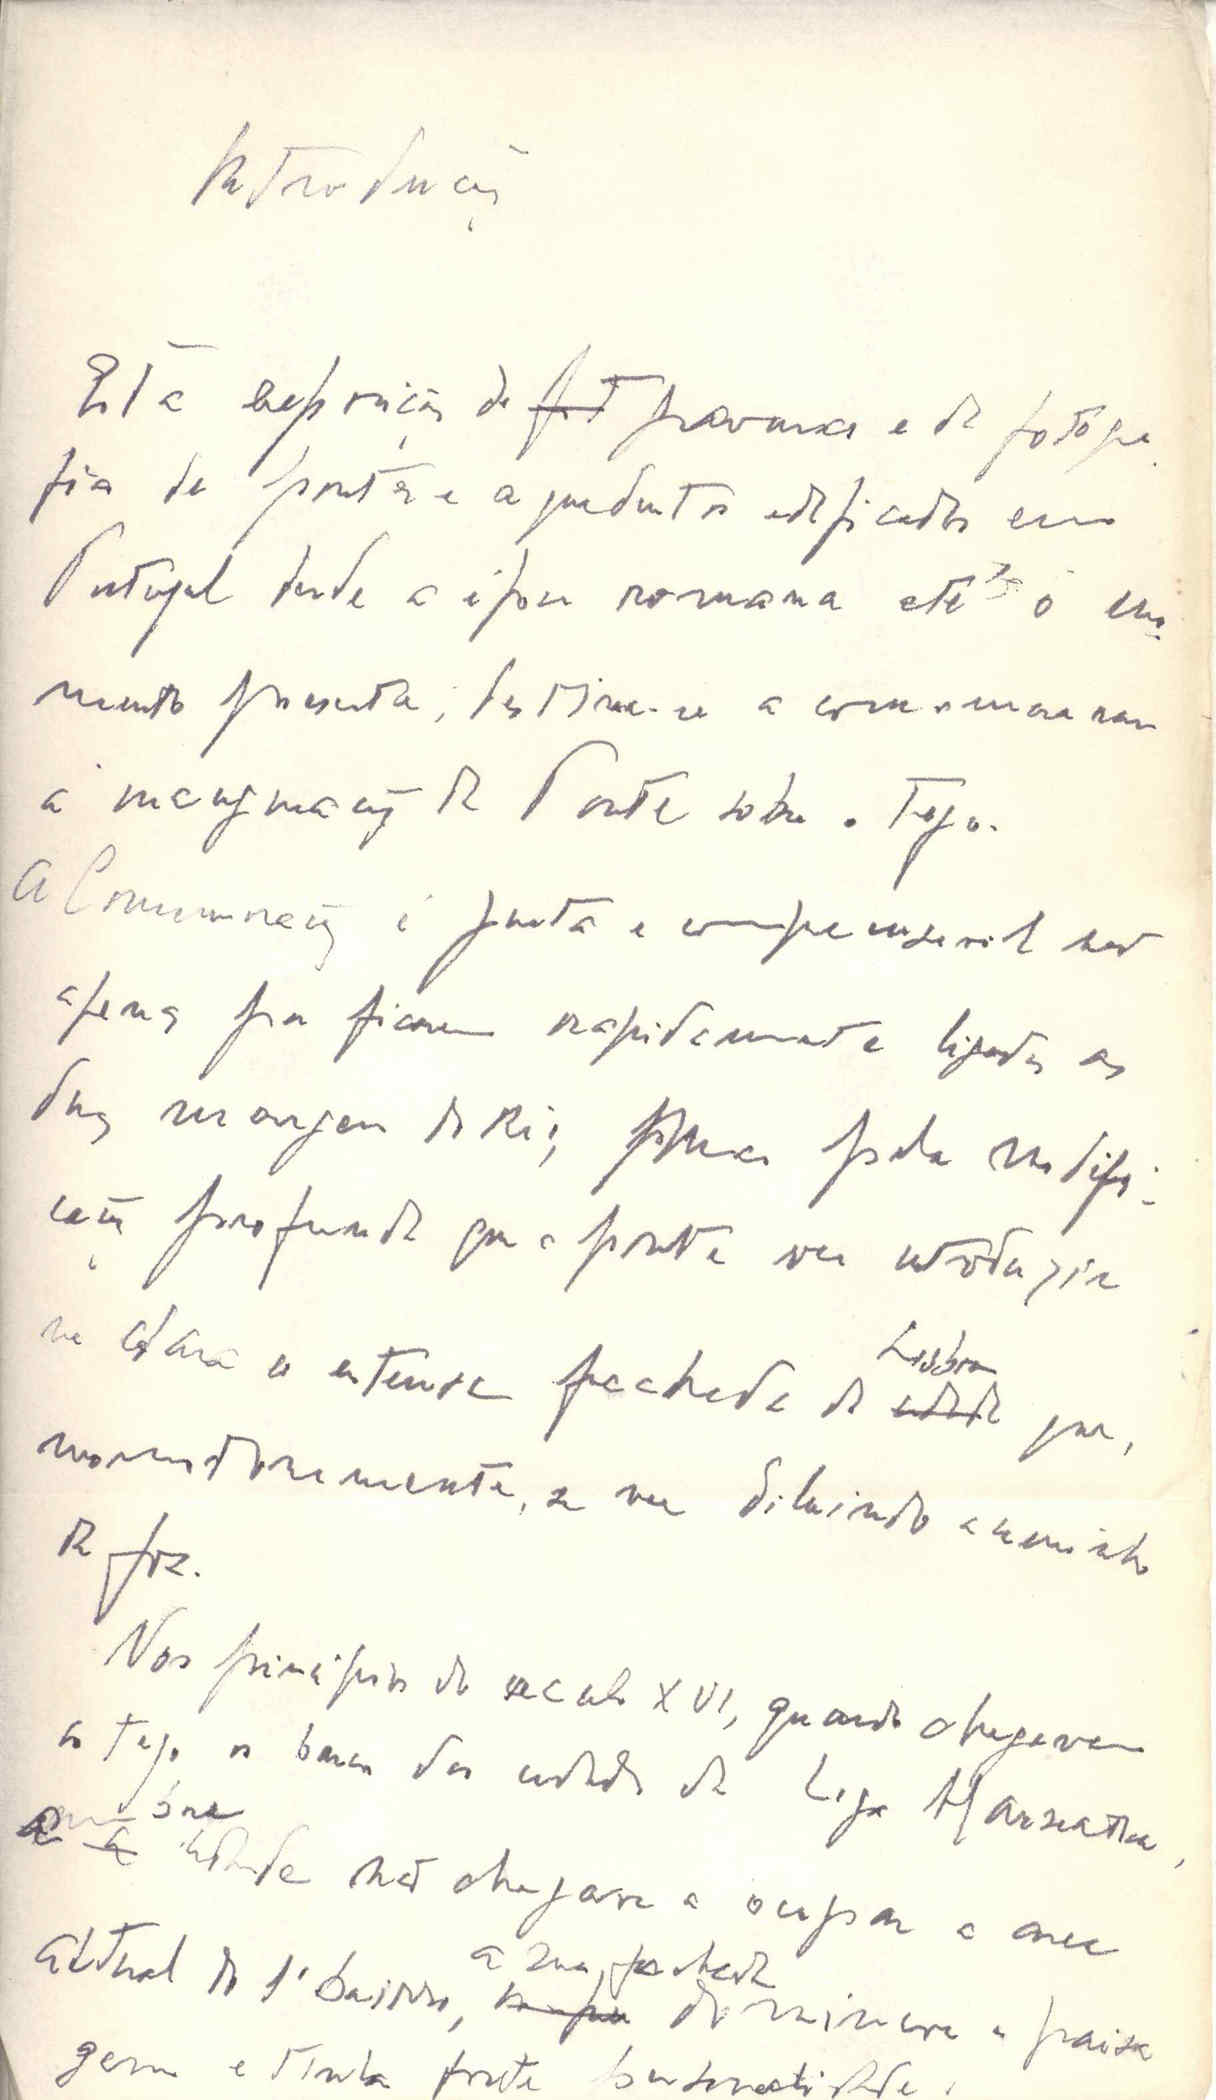 Introdução
Esta exposição de fot gravuras e de fotogra-
fia de pontes e aquedutos edificados em
Portugal desde a época romana até o mo-
mento presente, destina-se a comemorar
a inauguração da Ponte sobre o Tejo.
A Comemoração é justa e compensavel não
apenas por ficarem rapidamente ligadas as
duas margens do Rio, mas pela modifi-
cação profunda que a ponte vem introduzir
na clara e extensa fachada da cidade Lisboa que,
monotonamente, se vem diluindo a caminho
da foz.
Nos principios do seculo XVI, quando chegavam
ao Tejo os barcos das cidades da Liga Hanseatica,
a nobre cidade não chegava a ocupar a area
actual do 1º bairro, a sua fachada dominava a paisa
gem e tinha forte personalidade.